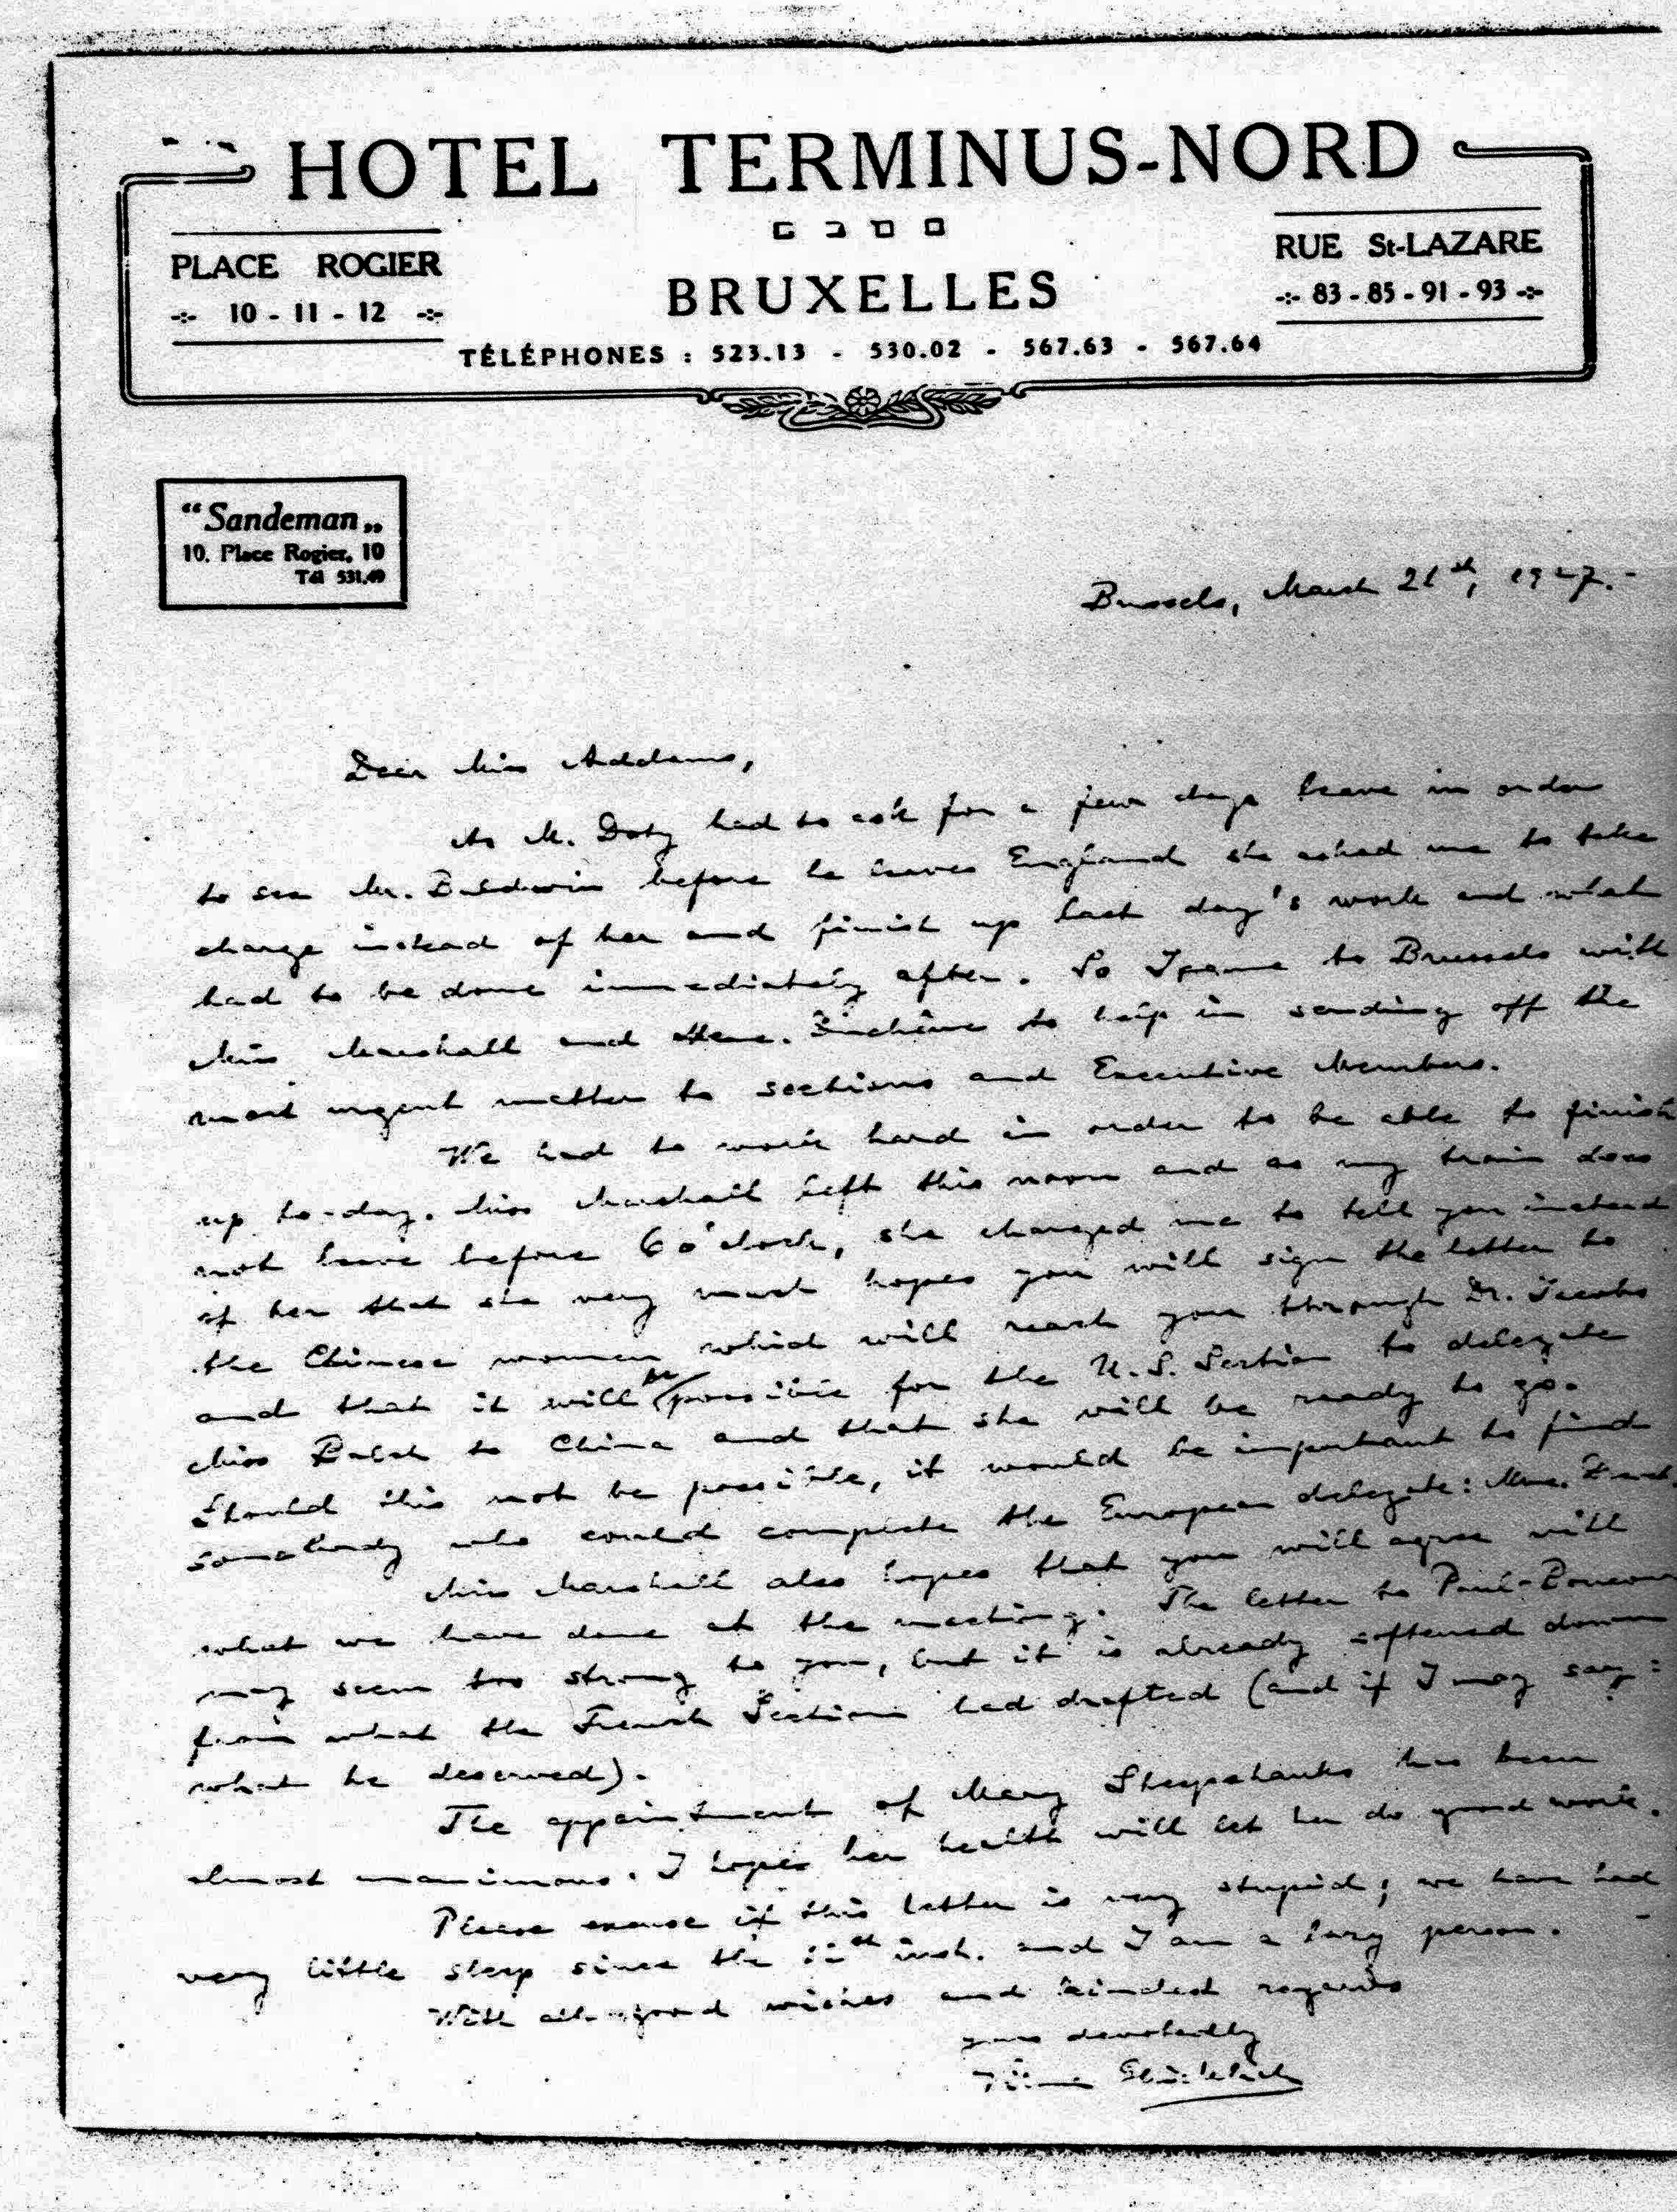 HOTEL TERMINUS-NORD
PLACE ROGIER
10 - 11 - 12
BRUXELLES
RUE St-LAZARE
83 - 85 - 91 - 93
TÉLÉPHONES : 523.13 - 530.02 - 567.63 - 567.64
"Sandeman„
10. Place Rogier, 10
Tél 531.49
Brussels, March 21st, 1927.-
Dear Miss Addams,
As M. Doty had to ask for a few days leave in order
to see Mr. Baldwin before he leaves England she asked me to take
charge instead of her and finish up last day's work and what
had to be done immediately after. So I came to Brussels with
Miss Marshall and to help in sending off the
most urgent matter to sections and Executive Members.
We had to work hard in order to be able to finish
up to-day. Miss Marshall left this noon and as my train does
not leave before 6 o'clock, she charged me to tell you instead
of her that she very much hopes you will sign the letter to
the Chinese women which will reach you through Dr. Jacobs
and that it will be possible for the U.S. Section to delegate
Miss Balch to China and that she will be ready to go.
Should this not be possible, it would be important to find
somebody who could complete the European delegate: Mme.
Miss Marshall also hopes that you will agree with
what we have done at the meeting. The letter to Paul-Boncour
may seem too strong to you, but it is already softened down
from what the French Section had drafted (and if I may say:
what he deserved).
The appointment of Mary Sheepshanks has been
almost unanimous. I hope her health will let her do good work.
Please excuse if this letter is very stupid; we have had
very little sleep since the inst. and I am a lazy person.
With all good wishes and kindest regards
yours devotedly
Vilma Glücklich